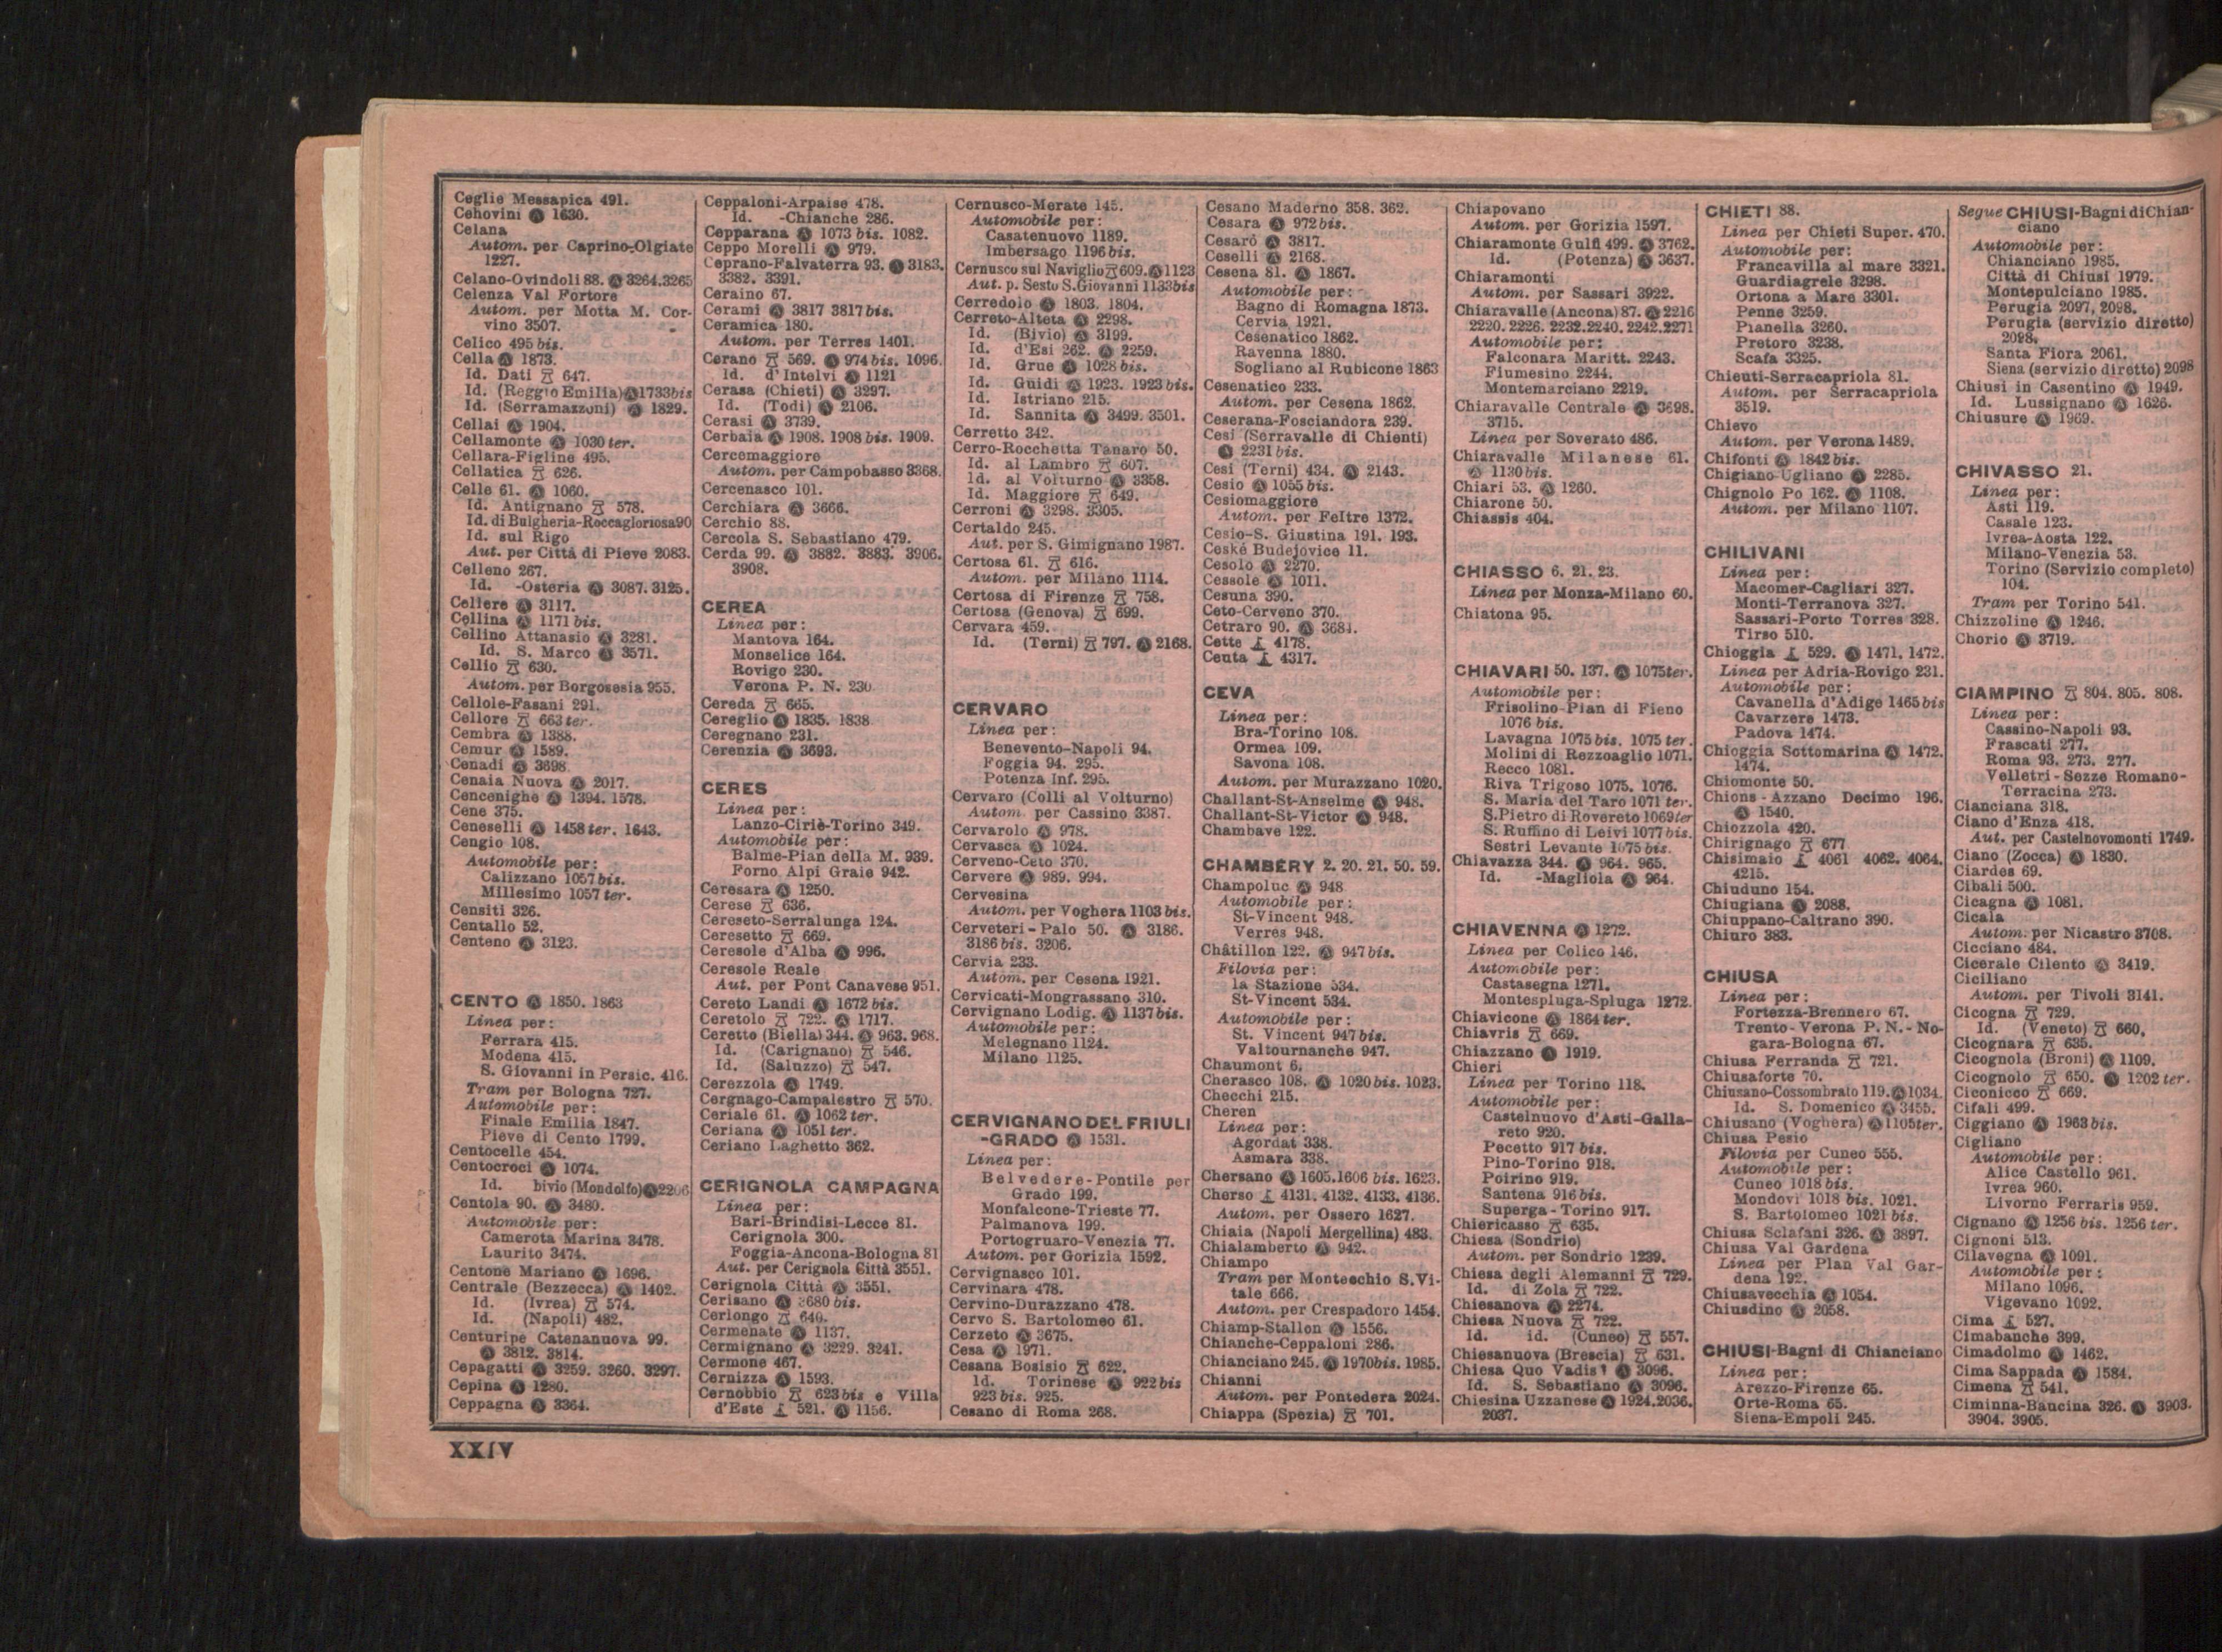 Ceglie Messapica 491.
Cehovini Ⓐ 1630.
Celana
Autom. per Caprino-Olgiate
1227.
Celano-Ovindoli 88. Ⓐ 3264.3265
Celenza Val Fortore
Autom. per Motta M. Cor-
vino 3507.
Celico 495 bis.
Cella Ⓐ 1873.
Id. Dati 647.
Id. (Reggio Emilia) Ⓐ 1733bis
Id. (Serramazzoni) Ⓐ 1829.
Cellai Ⓐ 1904.
Cellamonte Ⓐ 1030 ter.
Cellara-Figline 495.
Cellatica 626.
Celle 61. Ⓐ 1060.
Id. Antignano 578.
Id. di Bulgheria-Roccagloriosa 90
Id. sul Rigo
Aut. per Città di Pieve 2083.
Celleno 267.
Id. -Osteria Ⓐ 3087. 3125.
Cellere Ⓐ 3117.
Cellina Ⓐ 1171 bis.
Cellino Attanasio Ⓐ 3281.
Id. S. Marco Ⓐ 3571.
Cellio 630.
Autom. per Borgosesia 955.
Cellole-Fasani 291.
Cellore 663 ter.
Cembra Ⓐ 1388.
Cemur Ⓐ 1589.
Cenadi Ⓐ 3698
Cenaia Nuova Ⓐ 2017.
Cencenighe Ⓐ 1394. 1578.
Cene 375.
Ceneselli Ⓐ 1458 ter. 1643.
Cengio 108.
Automobile per:
Calizzano 1057 bis.
Millesimo 1057 ter.
Censiti 326.
Centallo 52.
Centeno Ⓐ 3123.
CENTO Ⓐ 1850. 1863
Linea per:
Ferrara 415.
Modena 415.
S. Giovanni in Persic. 416.
Tram per Bologna 727.
Automobile per:
Finale Emilia 1847.
Pieve di Cento 1799.
Centocelle 454.
Centocroci Ⓐ 1074.
Id. bivio (Mondolfo) Ⓐ 2206
Centola 90. Ⓐ 3480.
Automobile per:
Camerota Marina 3478.
Laurito 3474.
Centone Mariano Ⓐ 1696.
Centrale (Bezzecca) Ⓐ 1402.
Id. (Ivrea) 574.
Id. (Napoli) 482.
Centuripe Catenanuova 99.
Ⓐ 3812. 3814.
Cepagatti Ⓐ 3259. 3260. 3297.
Cepina Ⓐ 1280.
Ceppagna Ⓐ 3364.
Ceppaloni-Arpaise 478.
Id. -Chianche 286.
Cepparana Ⓐ 1073 bis. 1082.
Ceppo Morelli Ⓐ 979.
Ceprano-Falvaterra 93. Ⓐ 3183.
3382. 3391.
Ceraino 67.
Cerami Ⓐ 3817 3817 bis.
Ceramica 180.
Autom. per Terres 1401.
Cerano 569. Ⓐ 974 bis. 1096.
Id. d'Intelvi Ⓐ 1121
Cerasa (Chieti) Ⓐ 3297.
Id. (Todi) Ⓐ 2106.
Cerasi Ⓐ 3739.
Cerbaia Ⓐ 1908. 1908 bis. 1909.
Cercemaggiore
Autom. per Campobasso 3368.
Cercenasco 101.
Cerchiara Ⓐ 3666.
Cerchio 88.
Cercola S. Sebastiano 479.
Cerda 99. Ⓐ 3882. 3883. 3906.
3908.
CEREA
Linea per:
Mantova 164.
Monselice 164.
Rovigo 230.
Verona P. N. 230
Cereda 665.
Cereglio Ⓐ 1835. 1838
Ceregnano 231.
Cerenzia Ⓐ 3693.
CERES
Linea per:
Lanzo-Ciriè-Torino 349.
Automobile per:
Balme-Pian della M. 939.
Forno Alpi Graie 942.
Ceresara Ⓐ 1250.
Cerese 636.
Cereseto-Serralunga 124.
Ceresetto 669.
Ceresole d'Alba Ⓐ 996.
Ceresole Reale
Aut. per Pont Canavese 951.
Cereto Landi Ⓐ 1672 bis.
Ceretolo 722. Ⓐ 1717.
Ceretto (Biella) 344. Ⓐ 963. 968.
Id. (Carignano) 546.
Id. (Saluzzo) 547.
Cerezzola Ⓐ 1749.
Cergnago-Campalestro 570.
Ceriale 61. Ⓐ 1062 ter.
Ceriana Ⓐ 1051 ter.
Ceriano Laghetto 362.
CERIGNOLA CAMPAGNA
Linea per:
Bari-Brindisi-Lecce 81.
Cerignola 300.
Foggia-Ancona-Bologna 81
Aut. per Cerignola Città 3551.
Cerignola Città Ⓐ 3551.
Cerisano Ⓐ 3680 bis.
Cerlongo 640.
Cermenate Ⓐ 1137.
Cermignano Ⓐ 3229. 3241.
Cermone 467.
Cernizza Ⓐ 1593.
Cernobbio 623 bis e Villa
d'Este 521. Ⓐ 1156.
Cernusco-Merate 145.
Automobile per:
Casatenuovo 1189.
Imbersago 1196 bis.
Cernusco sul Naviglio 609. Ⓐ 1123
Aut. p. Sesto S. Giovanni 1133bis
Cerredolo Ⓐ 1803. 1804.
Cerreto-Alteta Ⓐ 2298.
Id. (Bivio) Ⓐ 3199.
Id. d'Esi 262. Ⓐ 2259.
Id. Grue Ⓐ 1028 bis.
Id. Guidi Ⓐ 1923. 1923 bis.
Id. Istriano 215.
Id. Sannita Ⓐ 3499. 3501.
Cerretto 342.
Cerro-Rocchetta Tanaro 50.
Id. al Lambro 607.
Id. al Volturno Ⓐ 3358.
Id. Maggiore 649.
Cerroni Ⓐ 3298. 3305.
Certaldo 245.
Aut. per S. Gimignano 1987.
Certosa 61. 616.
Autom. per Milano 1114.
Certosa di Firenze 758.
Certosa (Genova) 699.
Cervara 459.
Id. (Terni) 797. Ⓐ 2168.
CERVARO
Linea per:
Benevento-Napoli 94.
Foggia 94. 295.
Potenza Inf. 295.
Cervaro (Colli al Volturno)
Autom. per Cassino 3387.
Cervarolo Ⓐ 978.
Cervasca Ⓐ 1024.
Cerveno-Ceto 370.
Cervere Ⓐ 989. 994.
Cervesina
Autom. per Voghera 1103 bis.
Cerveteri-Palo 50. Ⓐ 3186.
3186 bis. 3206.
Cervia 233.
Autom. per Cesena 1921.
Cervicati-Mongrassano 310.
Cervignano Lodig. Ⓐ 1137 bis.
Automobile per:
Melegnano 1124.
Milano 1125.
CERVIGNANO DEL FRIULI
-GRADO Ⓐ 1531.
Linea per:
Belvedere-Pontile per
Grado 199.
Monfalcone-Trieste 77.
Palmanova 199.
Portogruaro-Venezia 77.
Autom. per Gorizia 1592.
Cervignasco 101.
Cervinara 478.
Cervino-Durazzano 478.
Cervo S. Bartolomeo 61.
Cerzeto Ⓐ 3675.
Cesa Ⓐ 1971.
Cesana Bosisio 622.
Id. Torinese Ⓐ 922 bis
923 bis. 925.
Cesano di Roma 268.
Cesano Maderno 358. 362.
Cesara Ⓐ 972 bis.
Cesarò Ⓐ 3817.
Ceselli Ⓐ 2168.
Cesena 81. Ⓐ 1867.
Automobile per:
Bagno di Romagna 1873.
Cervia 1921.
Cesenatico 1862.
Ravenna 1880.
Sogliano al Rubicone 1863
Cesenatico 233.
Autom. per Cesena 1862.
Ceserana-Fosciandora 239.
Cesi (Serravalle di Chienti)
Ⓐ 2231 bis.
Cesi (Terni) 434. Ⓐ 2143.
Cesio Ⓐ 1055 bis.
Cesiomaggiore
Autom. per Feltre 1372.
Cesio-S. Giustina 191. 193.
Ceské Budejovice 11.
Cesolo Ⓐ 2270.
Cessole Ⓐ 1011.
Cesuna 390.
Ceto-Cerveno 370.
Cetraro 90. Ⓐ 3681.
Cette 4178.
Ceuta 4317.
CEVA
Linea per:
Bra-Torino 108.
Ormea 109.
Savona 108.
Autom. per Murazzano 1020.
Challant-St-Anselme Ⓐ 948.
Challant-St-Victor Ⓐ 948.
Chambave 122.
CHAMBÉRY 2. 20. 21. 50. 59.
Champoluc Ⓐ 948
Automobile per:
St-Vincent 948.
Verrès 948.
Châtillon 122. Ⓐ 947 bis.
Filovia per:
la Stazione 534.
St-Vincent 534.
Automobile per:
St. Vincent 947 bis.
Valtournanche 947.
Chaumont 6.
Cherasco 108. Ⓐ 1020 bis. 1023.
Checchi 215.
Cheren
Linea per:
Agordat 338.
Asmara 338.
Chersano Ⓐ 1605. 1606 bis. 1623.
Cherso 4131. 4132. 4133. 4136.
Autom. per Ossero 1627.
Chiaia (Napoli Mergellina) 483.
Chialamberto Ⓐ 942.
Chiampo
Tram per Montecchio S. Vi-
tale 666.
Autom. per Crespadoro 1454.
Chiamp-Stallon Ⓐ 1556.
Chianche-Ceppaloni 286.
Chianciano 245. Ⓐ 1970bis. 1985.
Chianni
Autom. per Pontedera 2024.
Chiappa (Spezia) 701.
Chiapovano
Autom. per Gorizia 1597.
Chiaramonte Gulfi 499. Ⓐ 3762.
Id. (Potenza) Ⓐ 3637.
Chiaramonti
Autom. per Sassari 3922.
Chiaravalle (Ancona) 87. Ⓐ 2216
2220. 2226. 2232. 2240. 2242. 2271
Automobile per:
Falconara Maritt. 2243.
Fiumesino 2244.
Montemarciano 2219.
Chiaravalle Centrale Ⓐ 3698.
3715.
Linea per Soverato 486.
Chiaravalle Milanese 61.
Ⓐ 1130 bis.
Chiari 53. Ⓐ 1260.
Chiarone 50.
Chiassis 404.
CHIASSO 6. 21. 23.
Linea per Monza-Milano 60.
Chiatona 95.
CHIAVARI 50. 137. Ⓐ 1075ter.
Automobile per:
Frisolino-Pian di Fieno
1076 bis.
Lavagna 1075 bis. 1075 ter.
Molini di Rezzoaglio 1071.
Recco 1081.
Riva Trigoso 1075. 1076.
S. Maria del Taro 1071 ter.
S. Pietro di Rovereto 1069ter
S. Ruffino di Leivi 1077 bis.
Sestri Levante 1075 bis.
Chiavazza 344. Ⓐ 964. 965.
Id. -Magliola Ⓐ 964.
CHIAVENNA Ⓐ 1272.
Linea per Colico 146.
Automobile per:
Castasegna 1271.
Montespluga-Spluga 1272.
Chiavicone Ⓐ 1864 ter.
Chiavris 669.
Chiazzano Ⓐ 1919.
Chieri
Linea per Torino 118.
Automobile per:
Castelnuovo d'Asti-Galla-
reto 920.
Pecetto 917 bis.
Pino-Torino 918.
Poirino 919.
Santena 916 bis.
Superga-Torino 917.
Chiericasso 635.
Chiesa (Sondrio)
Autom. per Sondrio 1239.
Chiesa degli Alemanni 729.
Id. di Zola 722.
Chiesanova Ⓐ 2274.
Chiesa Nuova 722.
Id. id. (Cuneo) 557.
Chiesanuova (Brescia) 631.
Chiesa Quo Vadis? Ⓐ 3096.
Id. S. Sebastiano Ⓐ 3096.
Chiesina Uzzanese Ⓐ 1924. 2036.
2037.
CHIETI 88.
Linea per Chieti Super. 470.
Automobile per:
Francavilla al mare 3321.
Guardiagrele 3298.
Ortona a Mare 3301.
Penne 3259.
Pianella 3260.
Pretoro 3238.
Scafa 3325.
Chieuti-Serracapriola 81.
Autom. per Serracapriola
3519.
Chievo
Autom. per Verona 1489.
Chifonti Ⓐ 1842 bis.
Chigiano Ugliano Ⓐ 2285.
Chignolo Po 162. Ⓐ 1108.
Autom. per Milano 1107.
CHILIVANI
Linea per:
Macomer-Cagliari 327.
Monti-Terranova 327.
Sassari-Porto Torres 328.
Tirso 510.
Chioggia 529. Ⓐ 1471. 1472.
Linea per Adria-Rovigo 231.
Automobile per:
Cavanella d'Adige 1465 bis
Cavarzere 1473.
Padova 1474.
Chioggia Sottomarina Ⓐ 1472.
1474.
Chiomonte 50.
Chions-Azzano Decimo 196.
Ⓐ 1540.
Chiozzola 420.
Chirignago 677
Chisimaio 4061 4062. 4064.
4215.
Chiuduno 154.
Chiugiana Ⓐ 2088.
Chiuppano-Caltrano 390.
Chiuro 383.
CHIUSA
Linea per:
Fortezza-Brennero 67.
Trento-Verona P. N.-No-
gara-Bologna 67.
Chiusa Ferranda 721.
Chiusaforte 70.
Chiusano-Cossombrato 119. Ⓐ 1034.
Id. S. Domenico Ⓐ 3455.
Chiusano (Voghera) Ⓐ 1105ter.
Chiusa Pesio
Filovia per Cuneo 555.
Automobile per:
Cuneo 1018 bis.
Mondovì 1018 bis. 1021.
S. Bartolomeo 1021 bis.
Chiusa Sclafani 326. Ⓐ 3897.
Chiusa Val Gardena
Linea per Plan Val Gar-
dena 192.
Chiusavecchia Ⓐ 1054.
Chiusdino Ⓐ 2058.
CHIUSI-Bagni di Chianciano
Linea per:
Arezzo-Firenze 65.
Orte-Roma 65.
Siena-Empoli 245.
Segue CHIUSI-Bagni di Chian-
ciano
Automobile per:
Chianciano 1985.
Città di Chiusi 1979.
Montepulciano 1985.
Perugia 2097, 2098.
Perugia (servizio diretto)
2098.
Santa Fiora 2061.
Siena (servizio diretto) 2098
Chiusi in Casentino Ⓐ 1949.
Id. Lussignano Ⓐ 1626.
Chiusure Ⓐ 1969.
CHIVASSO 21.
Linea per:
Asti 119.
Casale 123.
Ivrea-Aosta 122.
Milano-Venezia 53.
Torino (Servizio completo)
104.
Tram per Torino 541.
Chizzoline Ⓐ 1246.
Chorio Ⓐ 3719.
CIAMPINO 804. 805. 808.
Linea per:
Cassino-Napoli 93.
Frascati 277.
Roma 93. 273. 277.
Velletri-Sezze Romano-
Terracina 273.
Cianciana 318.
Ciano d'Enza 418.
Aut. per Castelnovomonti 1749.
Ciano (Zocca) Ⓐ 1830.
Ciardes 69.
Cibali 500.
Cicagna Ⓐ 1081.
Cicala
Autom. per Nicastro 3708.
Cicciano 484.
Cicerale Cilento Ⓐ 3419.
Ciciliano
Autom. per Tivoli 3141.
Cicogna 729.
Id. (Veneto) 660.
Cicognara 635.
Cicognola (Broni) Ⓐ 1109.
Cicognolo 650. Ⓐ 1202 ter.
Ciconicco 669.
Cifali 499.
Ciggiano Ⓐ 1963 bis.
Cigliano
Automobile per:
Alice Castello 961.
Ivrea 960.
Livorno Ferraris 959.
Cignano Ⓐ 1256 bis. 1256 ter.
Cignoni 513.
Cilavegna Ⓐ 1091.
Automobile per:
Milano 1096.
Vigevano 1092.
Cima 527.
Cimabanche 399.
Cimadolmo Ⓐ 1462.
Cima Sappada Ⓐ 1584.
Cimena 541.
Ciminna-Baucina 326. Ⓐ 3903.
3904. 3905.
XXIV